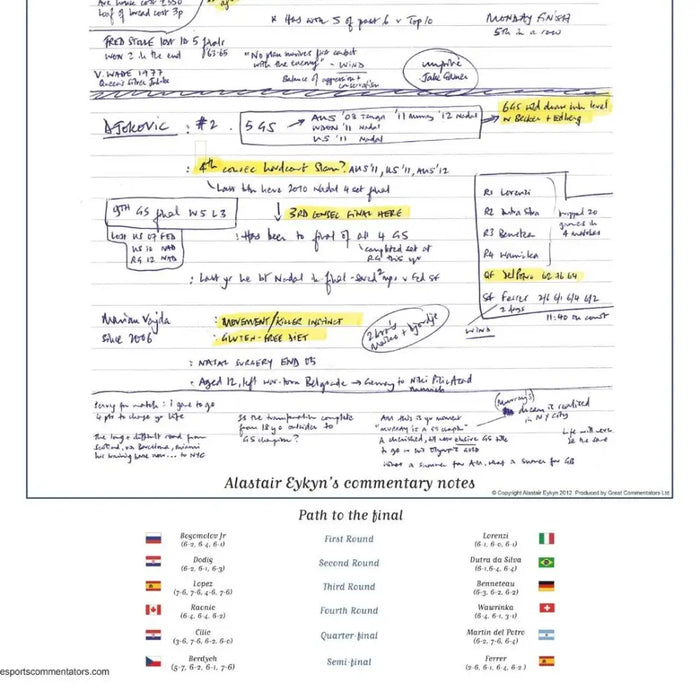 Ave house cost
loaf of bread cost 3p
* Has won 5 of past 6 v Top 10
MONDAY FINISH
5th in a row
FRED STOLLE lost 1st 5 finals
WON 2 in the end
63-65
"No plan survives first contact
with the enemy" - WIND
Balance of aggression +
conservatism
umpire
Jake Garner
V. WADE 1977
Queen's Silver Jubilee
DJOKOVIC : #2 . 5 GS
AUS '08 Tsonga '11 Murray '12 Nadal
WDON '11 Nadal
US '11 Nadal
6 GS wld draw him level
w Becker + Edberg
: 4th consec hardcourt Slam? AUS '11, US '11, AUS '12
Last btn here 2010 Nadal 4 set final
9TH GS final W5 L3
3RD CONSEC FINAL HERE
LOST US 07 FED
US 10 NAD
RG 12 NAD
: Has been to final of all 4 GS
completed set at
RG this yr
: Last yr he bt Nadal in final - saved 2 mps v Fed SF
R1 Lorenzi
R2 Dutra Silva
R3 Benneteau
R4 Wawrinka
dropped 20
games in
4 matches
QF Del Potro 62 76 64
SF Ferrer 2/6 6/1 6/4 6/2
2 days
WIND
11:40 on court
Marian Vajda
since 2006
: MOVEMENT/KILLER INSTINCT
: GLUTEN-FREE DIET
2 bro's
Marko + Djordje
: NASAL SURGERY END 05
: Aged 12, left war-torn Belgrade → Germany to Niki Pilic Acad
Munich
Serving for match : 1 game to go
4 pts to change yr life
The long + difficult road from
Scotland, via Barcelona, Miami
his training base now... to NYC
Is the transformation complete
from 18 yo outsider to
GS champion?
And this is yr moment
"MURRAY is a GS champ"
A cherished, till now elusive GS title
to go w his Olympic gold
What a summer for AM, what a summer for GB
(Murray's)
dream is realised
in NY City
Life will never
be the same
Alastair Eykyn's commentary notes
© Copyright Alastair Eykyn 2012 Produced by Great Commentators Ltd
Path to the final
Bogomolov Jr
(6-2, 6-4, 6-1)
First Round
Lorenzi
(6-1, 6-0, 6-1)
Dodig
(6-2, 6-1, 6-3)
Second Round
Dutra da Silva
(6-1, 6-4, 6-4)
Lopez
(7-6, 7-6, 4-6, 7-6)
Third Round
Benneteau
(6-3, 6-2, 6-2)
Raonic
(6-4, 6-4, 6-2)
Fourth Round
Wawrinka
(6-4, 6-1, 3-1)
Cilic
(3-6, 7-6, 6-2, 6-0)
Quarter-final
Martin del Potro
(6-2, 7-6, 6-4)
Berdych
(5-7, 6-2, 6-1, 7-6)
Semi-final
Ferrer
(2-6, 6-1, 6-4, 6-2)
esportscommentators.com